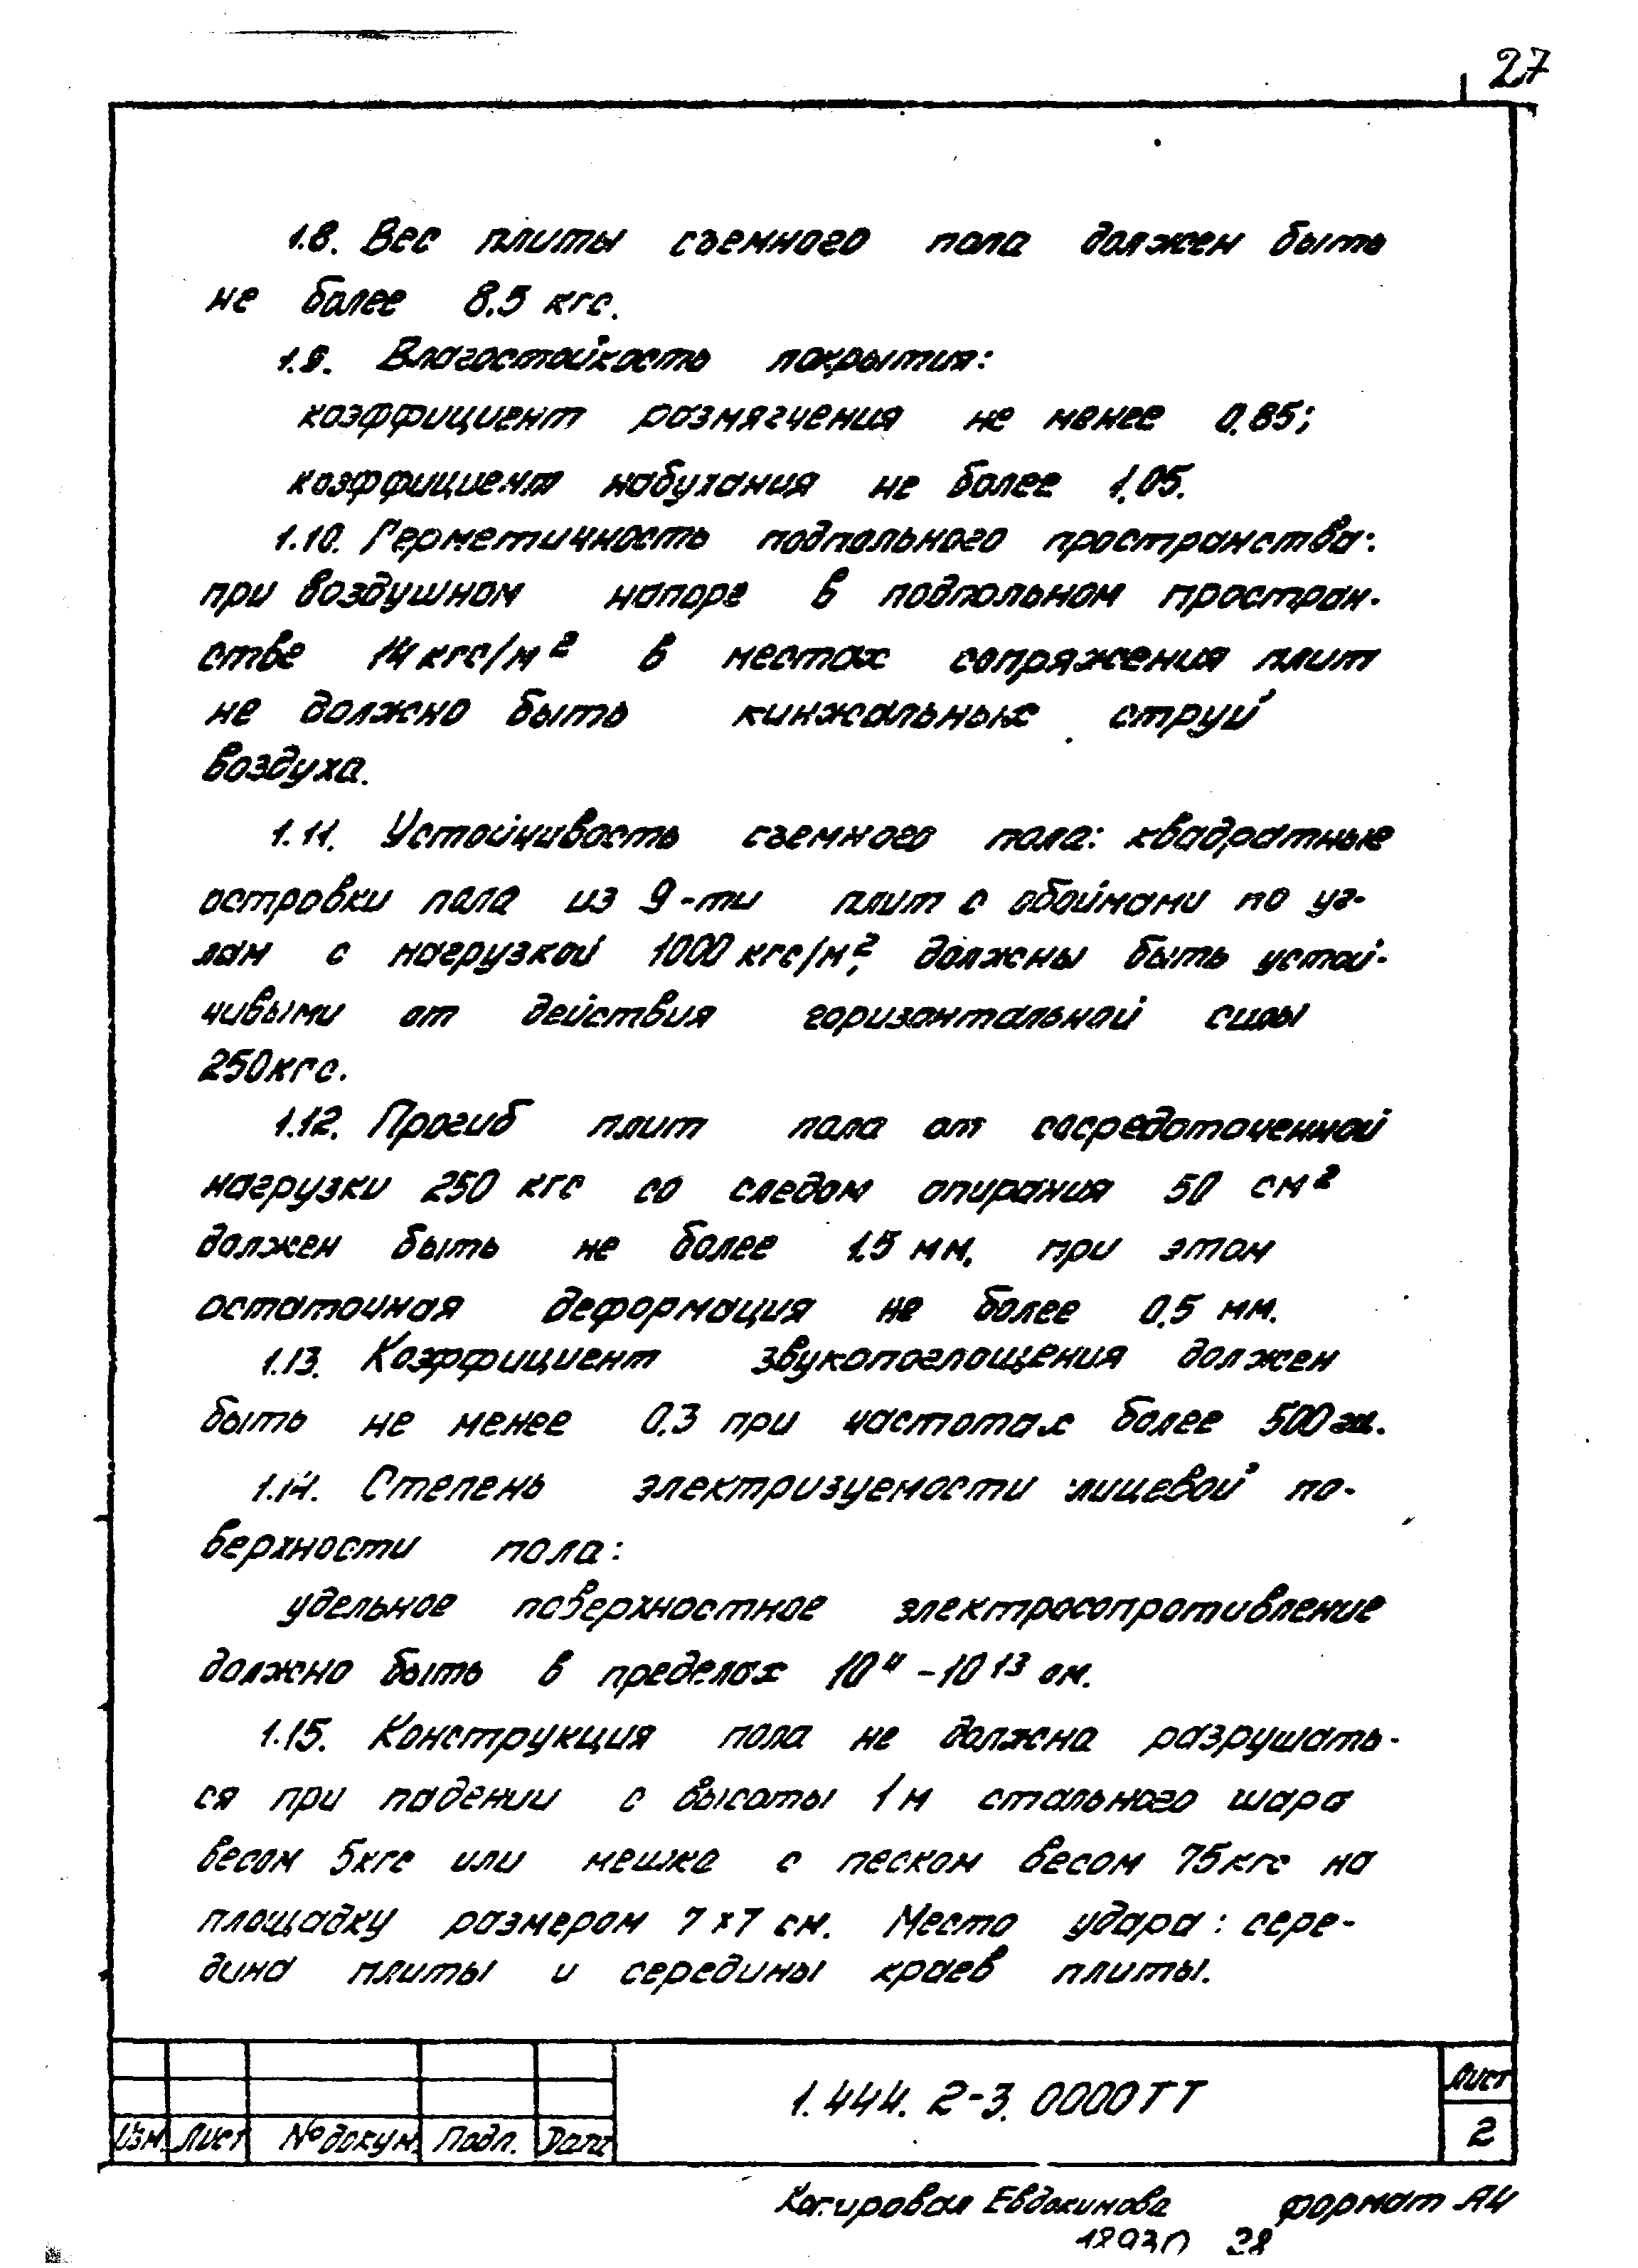 27
1.8. Вес плиты съемного пола должен быть
не более 8.5 кгс.
1.9. Влагостойкость покрытия:
коэффициент размягчения не менее 0.85;
коэффициент набухания не более 1.05.
1.10. Герметичность подпольного пространства:
при воздушном напоре в подпольном простран-
стве 14 кгс/м² в местах сопряжения плит
не должно быть кинжальных струй
воздуха.
1.11. Устойчивость съемного пола: квадратные
островки пола из 9-ти плит с обоймами по уг-
лам с нагрузкой 1000 кгс/м², должны быть устой-
чивыми от действия горизонтальной силы
250кгс.
1.12. Прогиб плит пола от сосредоточенной
нагрузки 250 кгс со следом опирания 50 см²
должен быть не более 1.5 мм, при этом
остаточная деформация не более 0.5 мм.
1.13. Коэффициент звукопоглощения должен
быть не менее 0.3 при частотах более 500 гц.
1.14. Степень электризуемости лицевой по-
верхности пола:
удельное поверхностное электросопротивление
должно быть в пределах 10⁴-10¹³ ом.
1.15. Конструкция пола не должна разрушать-
ся при падении с высоты 1м стального шара
весом 5кгс или мешка с песком весом 75кгс на
площадку размером 7х7 см. Место удара: сере-
дина плиты и середины краев плиты.
1.444.2-3.0000ТТ
Лист
2
Изм. Лист №докум. Подп. Дата
Копировал Евдокимова формат А4